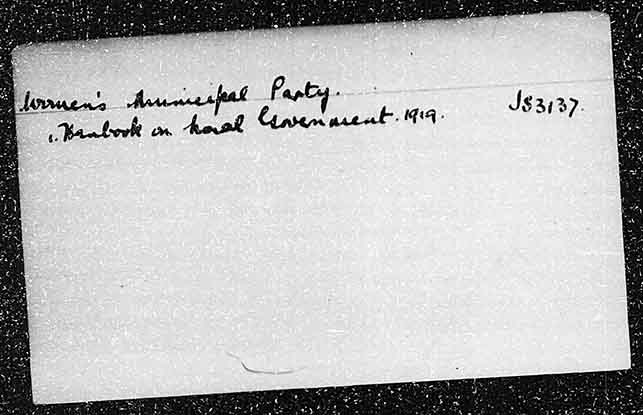 Women's Municipal Party.
1. Hanbook on Local Government. 1919. JS3137.